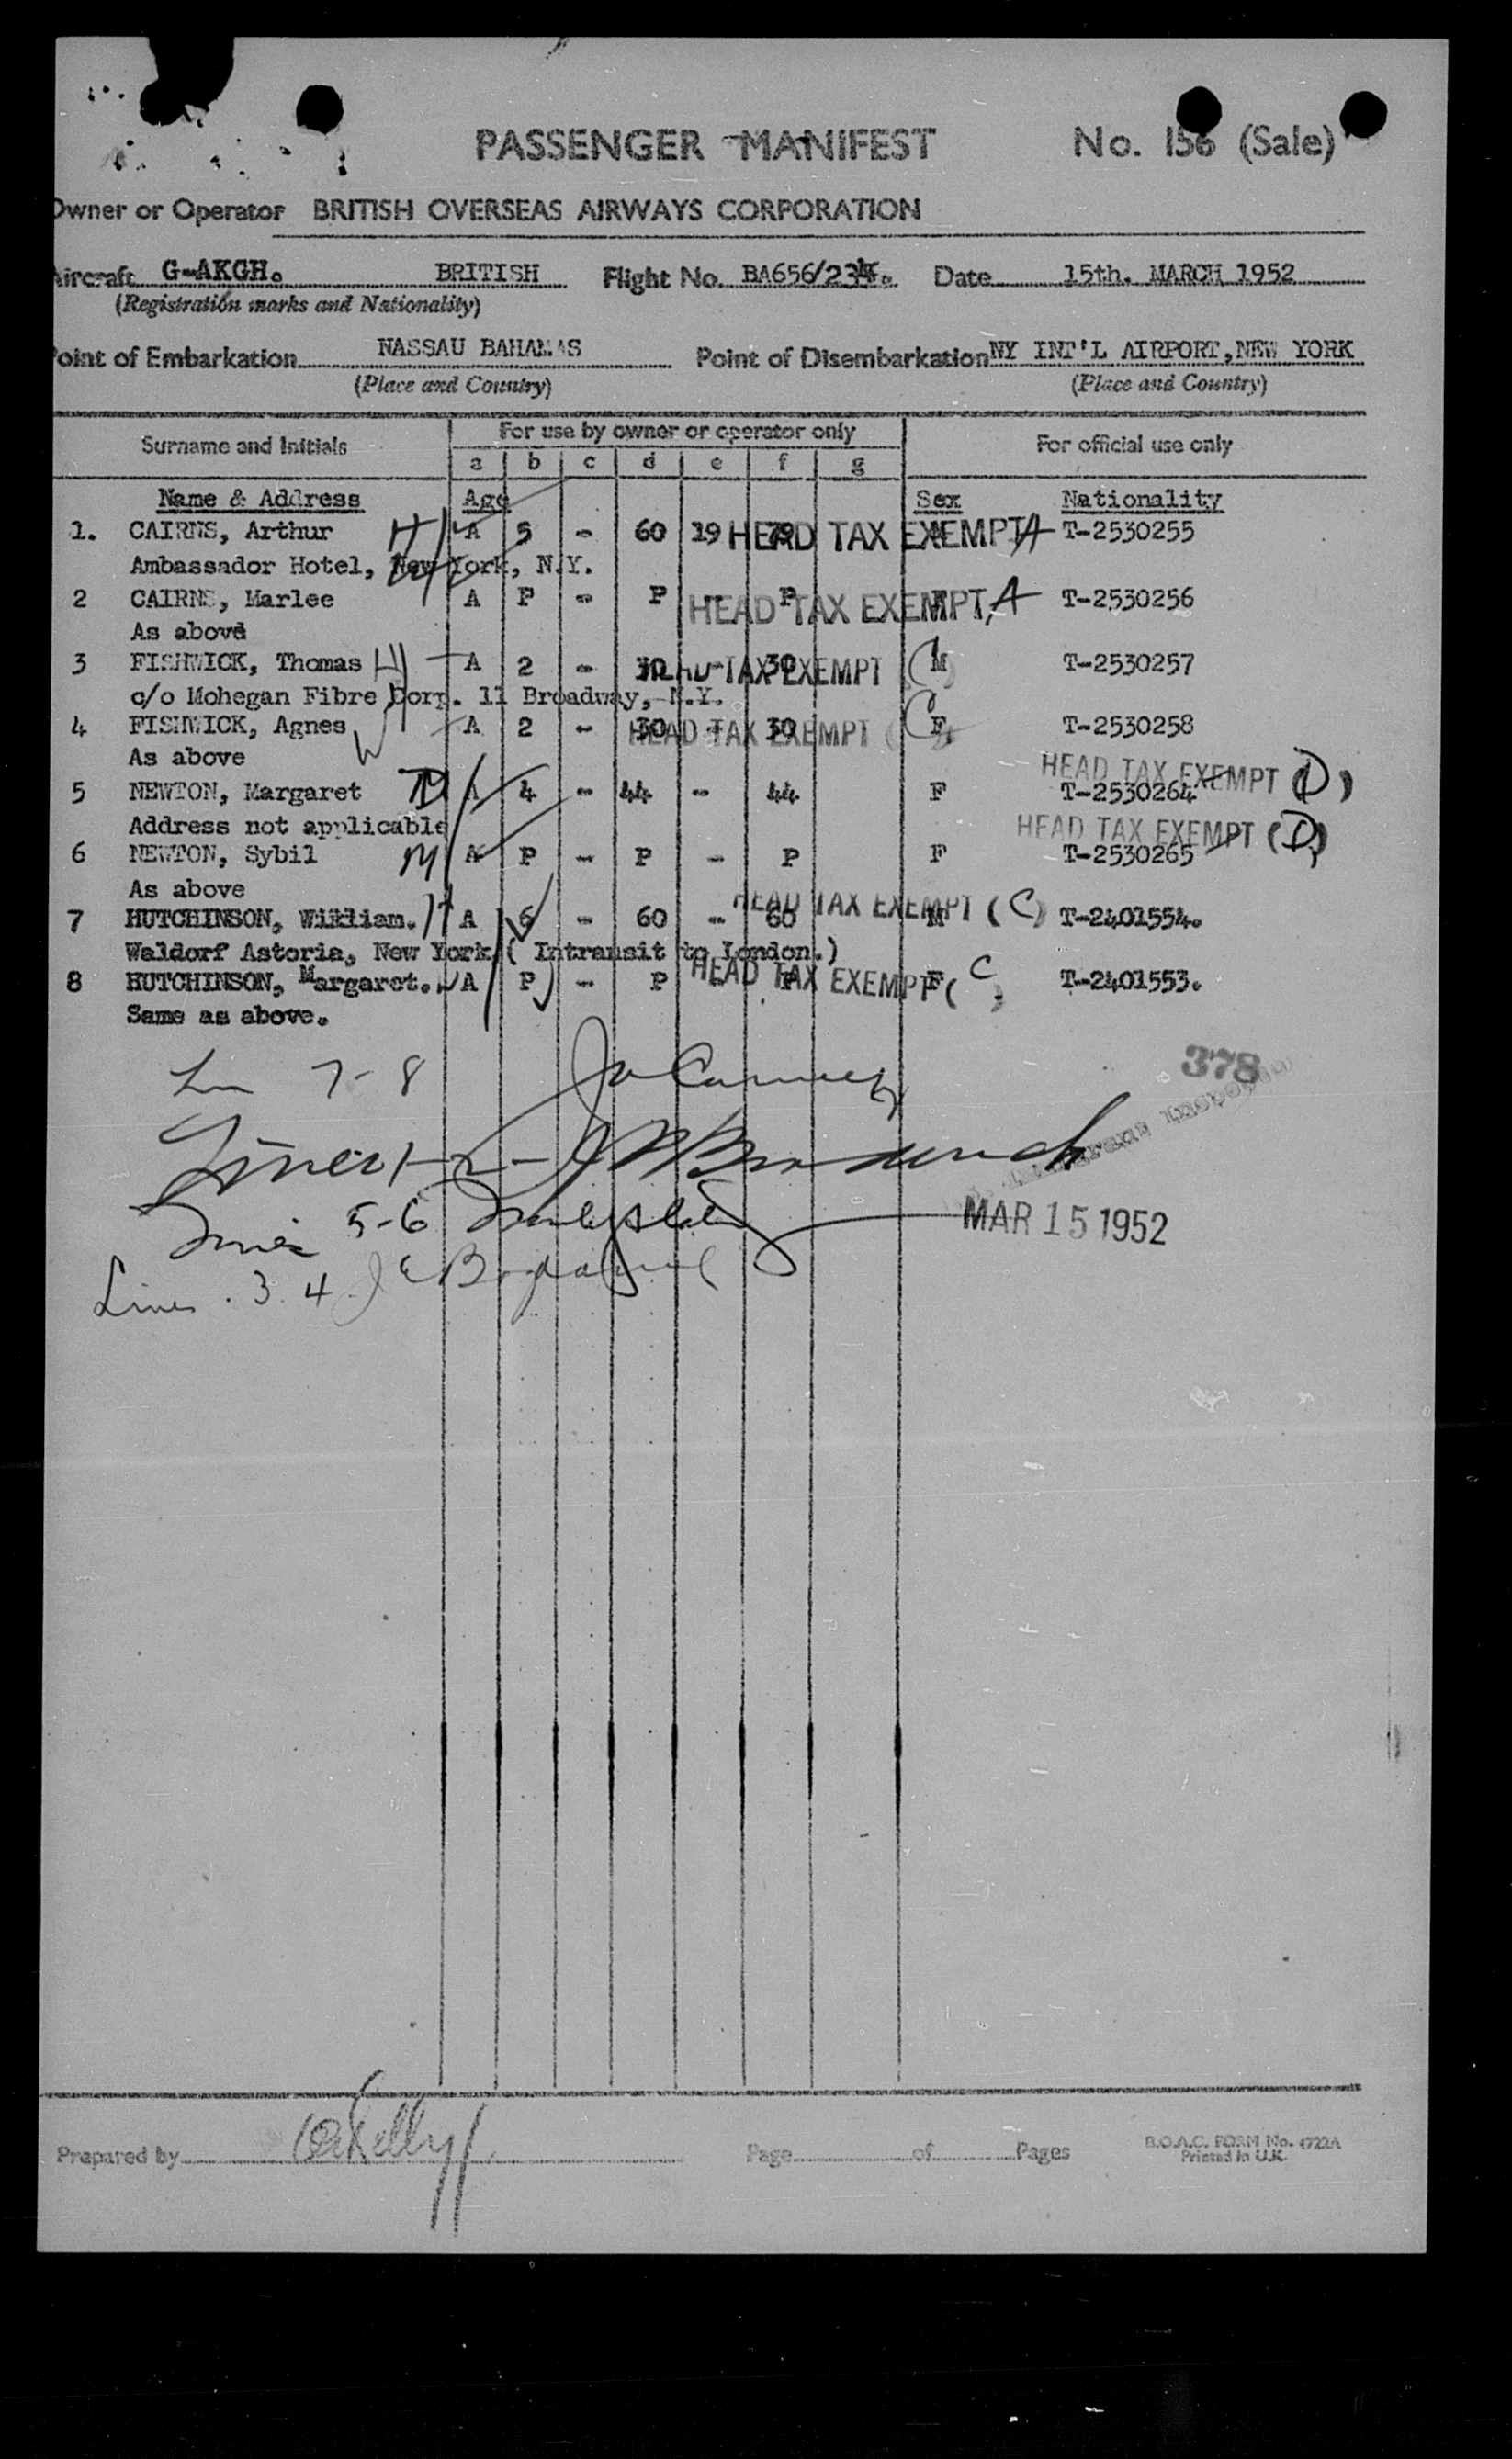 PASSENGER MANIFEST No. 156 (Sale)
Owner or Operator BRITISH OVERSEAS AIRWAYS CORPORATION
Aircraft G-AKGH. BRITISH Flight No. BA656/234. Date 15th. MARCH 1952
(Registration marks and Nationality)
Point of Embarkation NASSAU BAHAMAS Point of Disembarkation NY INT'L AIRPORT, NEW YORK
(Place and Country) (Place and Country)
Surname and Initials For use by owner or operator only For official use only
a b c d e f g
Name & Address Age Sex Nationality
1. CAIRNS, Arthur H A 5 - 60 19 79 HEAD TAX EXEMPT A T-2530255
Ambassador Hotel, New York, N.Y.
2 CAIRNS, Marlee W A P - P - P HEAD TAX EXEMPT A T-2530256
As above
3 FISHWICK, Thomas H A 2 - 30 - 30 TAX EXEMPT (M) T-2530257
c/o Mohegan Fibre Corp. 11 Broadway, N.Y.
4 FISHWICK, Agnes W A 2 - 30 - 30 HEAD TAX EXEMPT (C) F T-2530258
As above HEAD TAX EXEMPT (D)
5 NEWTON, Margaret D A 4 - 44 - 44 F T-2530264
Address not applicable HEAD TAX EXEMPT (D)
6 NEWTON, Sybil M A P - P - P F T-2530265
As above
7 HUTCHINSON, William. H A 6 - 60 - 60 HEAD TAX EXEMPT (C) M T-2401554.
Waldorf Astoria, New York ( Intransit to London.)
8 HUTCHINSON, Margaret. W A P - P - P HEAD TAX EXEMPT (C) F T-2401553.
Same as above.
Ln 7-8
378
Lines 1-2-
Lines 5-6
MAR 15 1952
Lines . 3. 4
Prepared by Kelly Page of Pages B.O.A.C. FORM No. 1722A
Printed in U.K.